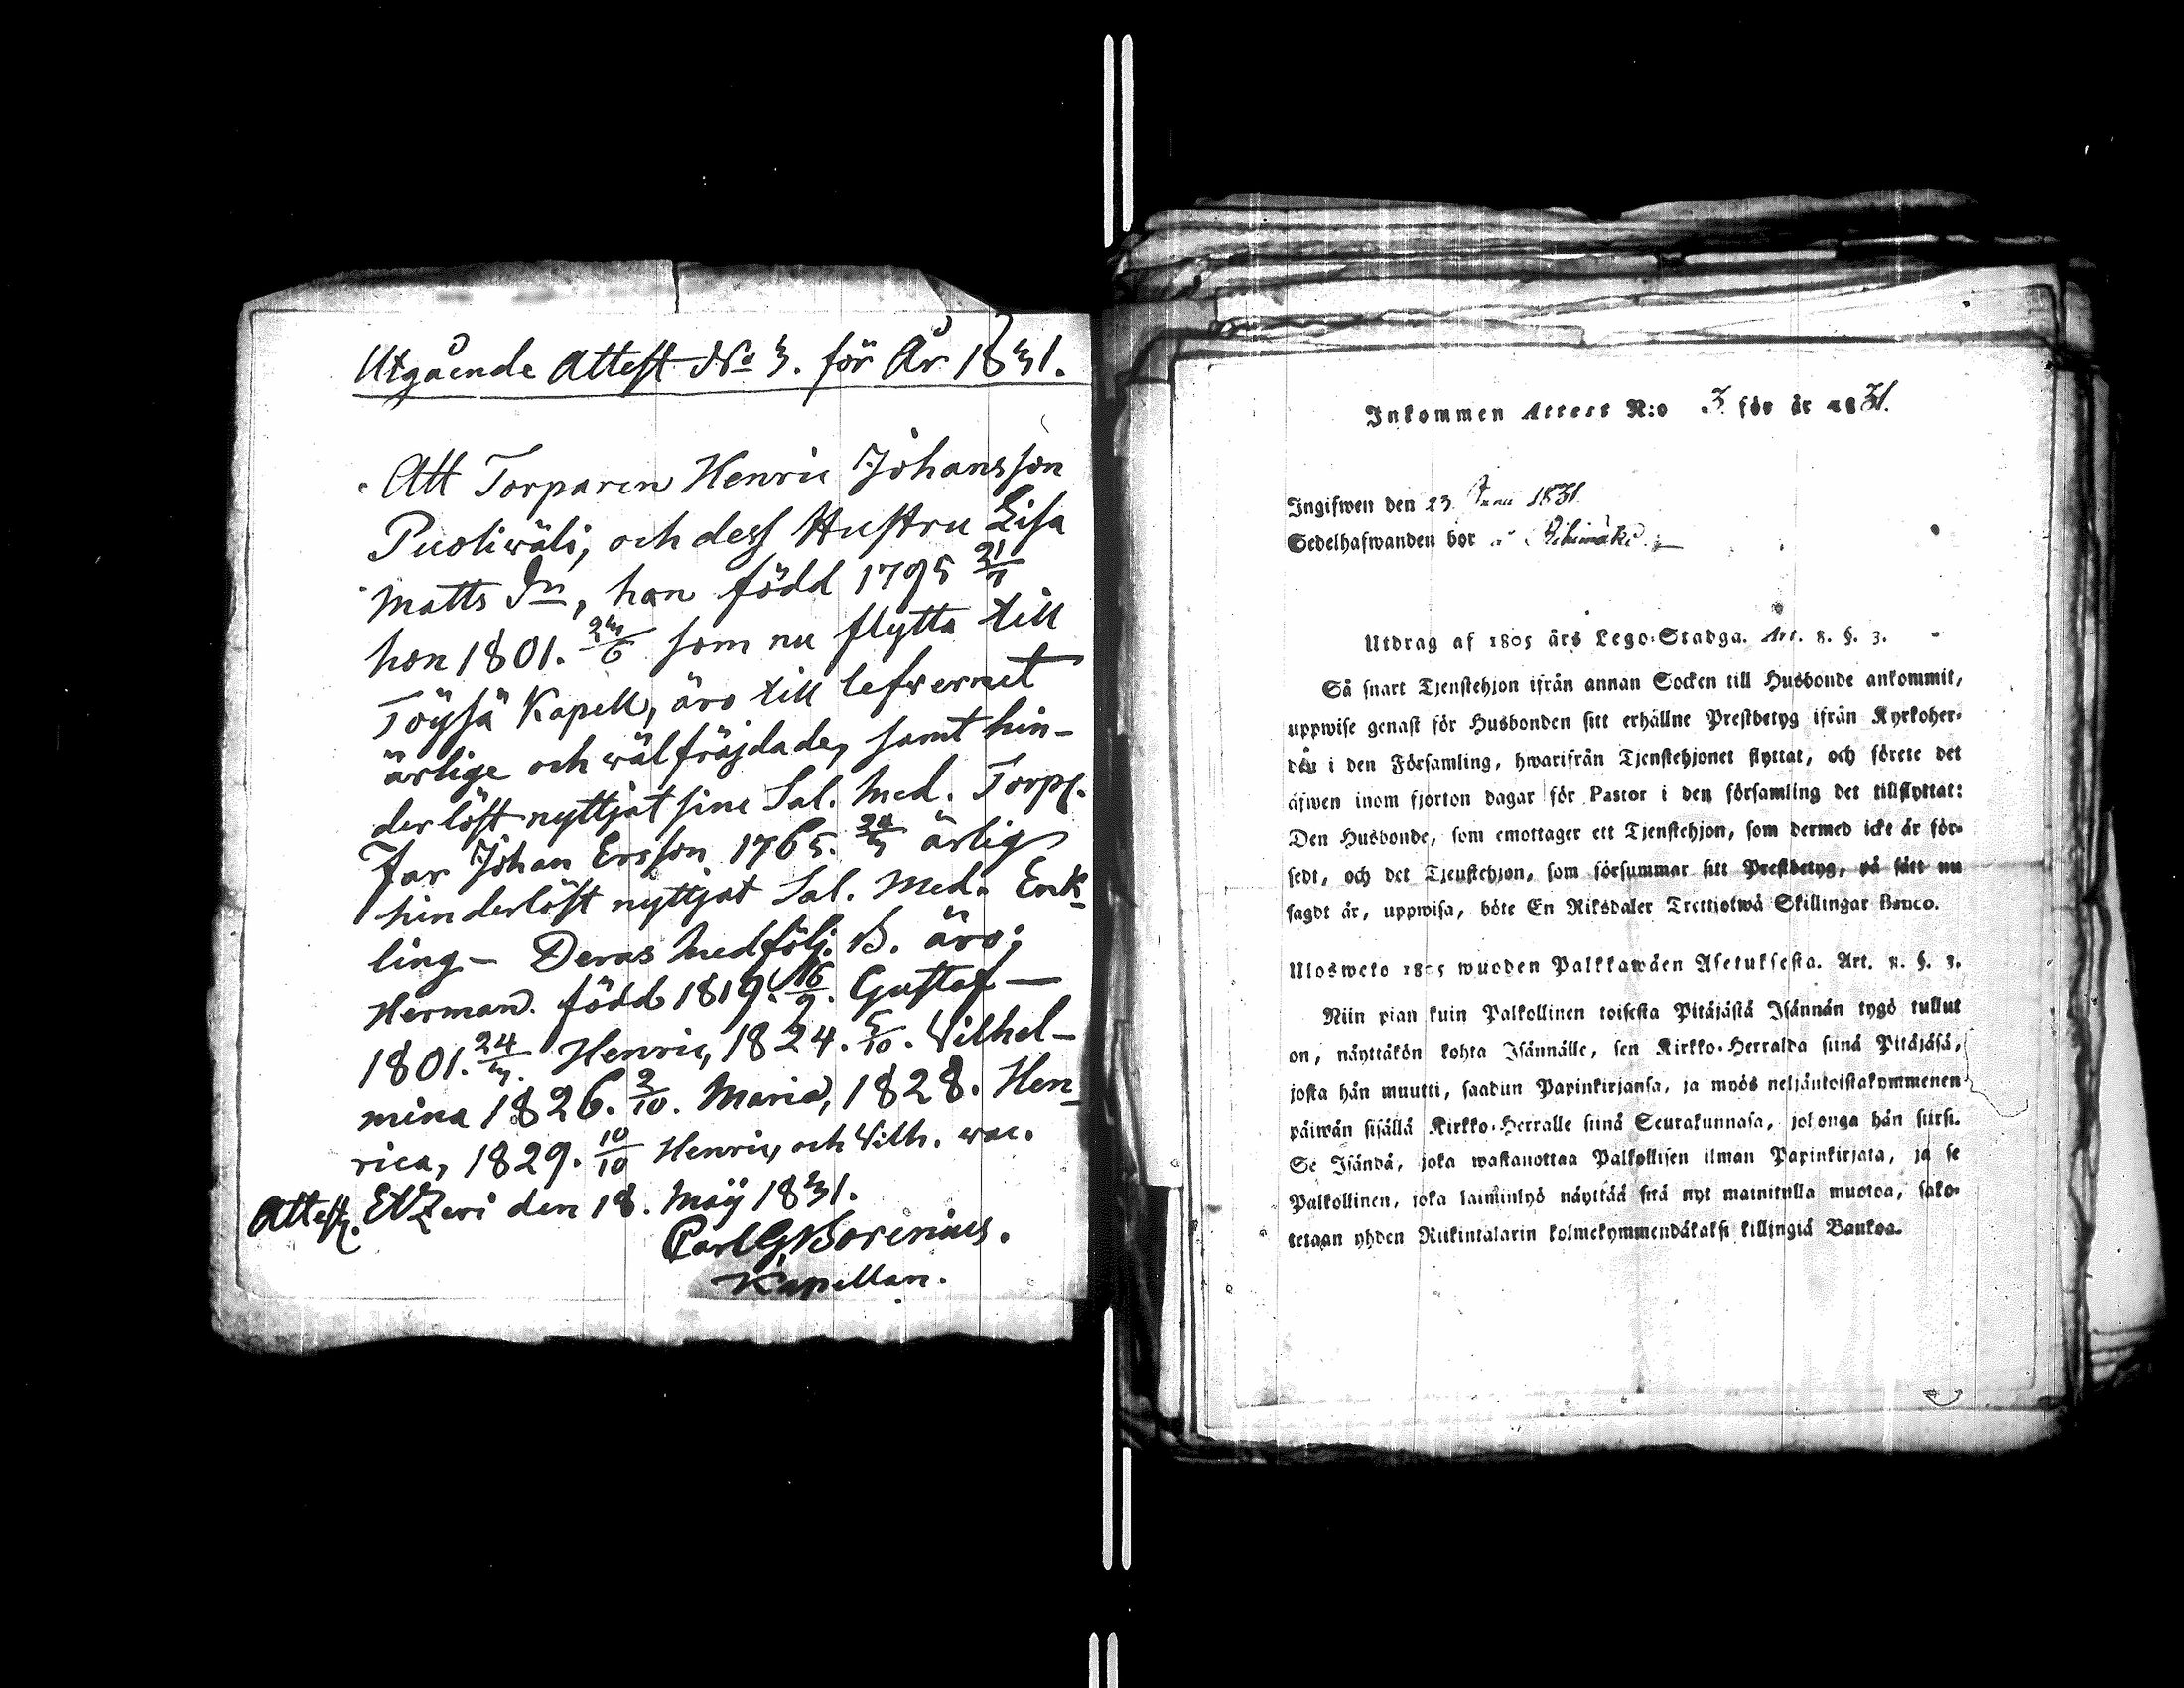 Utgående Attest No 3. för År 1831.
Att Torparen Henric Johansson
Puoliwäli, och dess Hustru Lisa
Matts Dr, han född 1795 21/7
hon 1801. 23/6 som nu flytta till
Töysä Kapell, äro till lefwernet
ärlige och wälfräjdade, samt hin-
derlöst nyttjat sine Sal. Med. Torp.
Far Johan Ersson 1765. 24/3 ärlig
hinderlöst nyttjat Sal. Med. Enk-
ling – Deras Medfölj. B. äro;
Herman. född 1819. 16/9. Gustaf –
1801. 24/3. Henric, 1824. 5/10. Vilhel-
mina 1826. 2/10. Maria, 1828. Hen-
rica, 1829. 10/10 Henric, och Vilh. vac.
Attest. Etzeri den 18. Maÿ 1831.
Carl G. Borenius.
Kapellan.
Inkommen Attest N:o 3. för år 1831.
Ingifwen den 23 Juni 1831.
Sedelhafwanden bor
Utdrag af 1805 års Lego-Stadga. Art. 8. §. 3.
Så snart Tjenstehjon ifrån annan Socken till Husbonde ankommit,
uppwise genast för Husbonden sitt erhållne Prestbetyg ifrån Kyrkoher-
den i den Församling, hwarifrån Tjenstehjonet flyttat, och förete det
äfwen inom fjorton dagar för Pastor i den församling det tillflyttat:
Den Husbonde, som emottager ett Tjenstehjon, som dermed icke är för-
sedt, och det Tjenstehjon, som försummar sitt Prestbetyg, på sätt nu
sagdt är, uppwisa, böte En Riksdaler Trettjotwå Skillingar Banco.
Ulosweto 1805 wuoden Palkkawäen Asetuksesta. Art. 8. §. 3.
Niin pian kuin Palkollinen toisesta Pitäjästä Isännän tygö tullut
on, näyttäkön kohta Isännälle, sen Kirkko-Herralda siinä Pitäjäsä,
josta hän muutti, saadun Papinkirjansa, ja myös neljäntoistakymmenen
päiwän sisällä Kirkko-Herralle siinä Seurakunnasa, johonga hän siirsi.
Se Isändä, joka wastanottaa Palkollisen ilman Papinkirjata, ja se
Palkollinen, joka laiminlyö näyttää sitä nyt mainitulla muotoa, sako-
tetaan yhden Riikintalarin kolmekymmendäkaksi killingiä Bankoa.